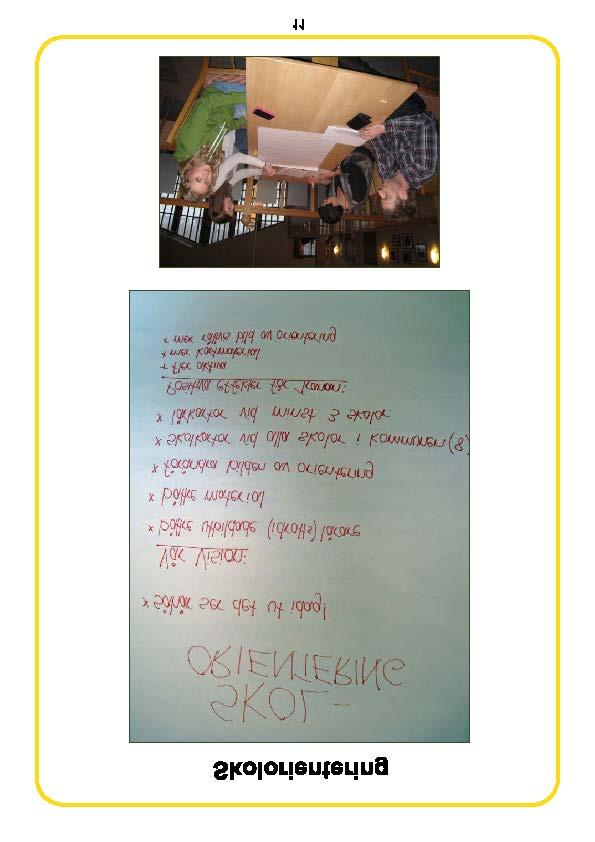 Skolorientering
SKOL-
ORIENTERING
x såhär ser det ut idag!
Vår Vision:
x bättre utbildade (idrotts) lärare
x bättre material
x förändra bilden av orientering
x skolkartor vid alla skolor i kommunen (8)
x lärkartor vid minst 3 skolor.
Positiva effekter för
+ fler aktiva
x mer kartmaterial
x mer rättvis bild av orientering
11